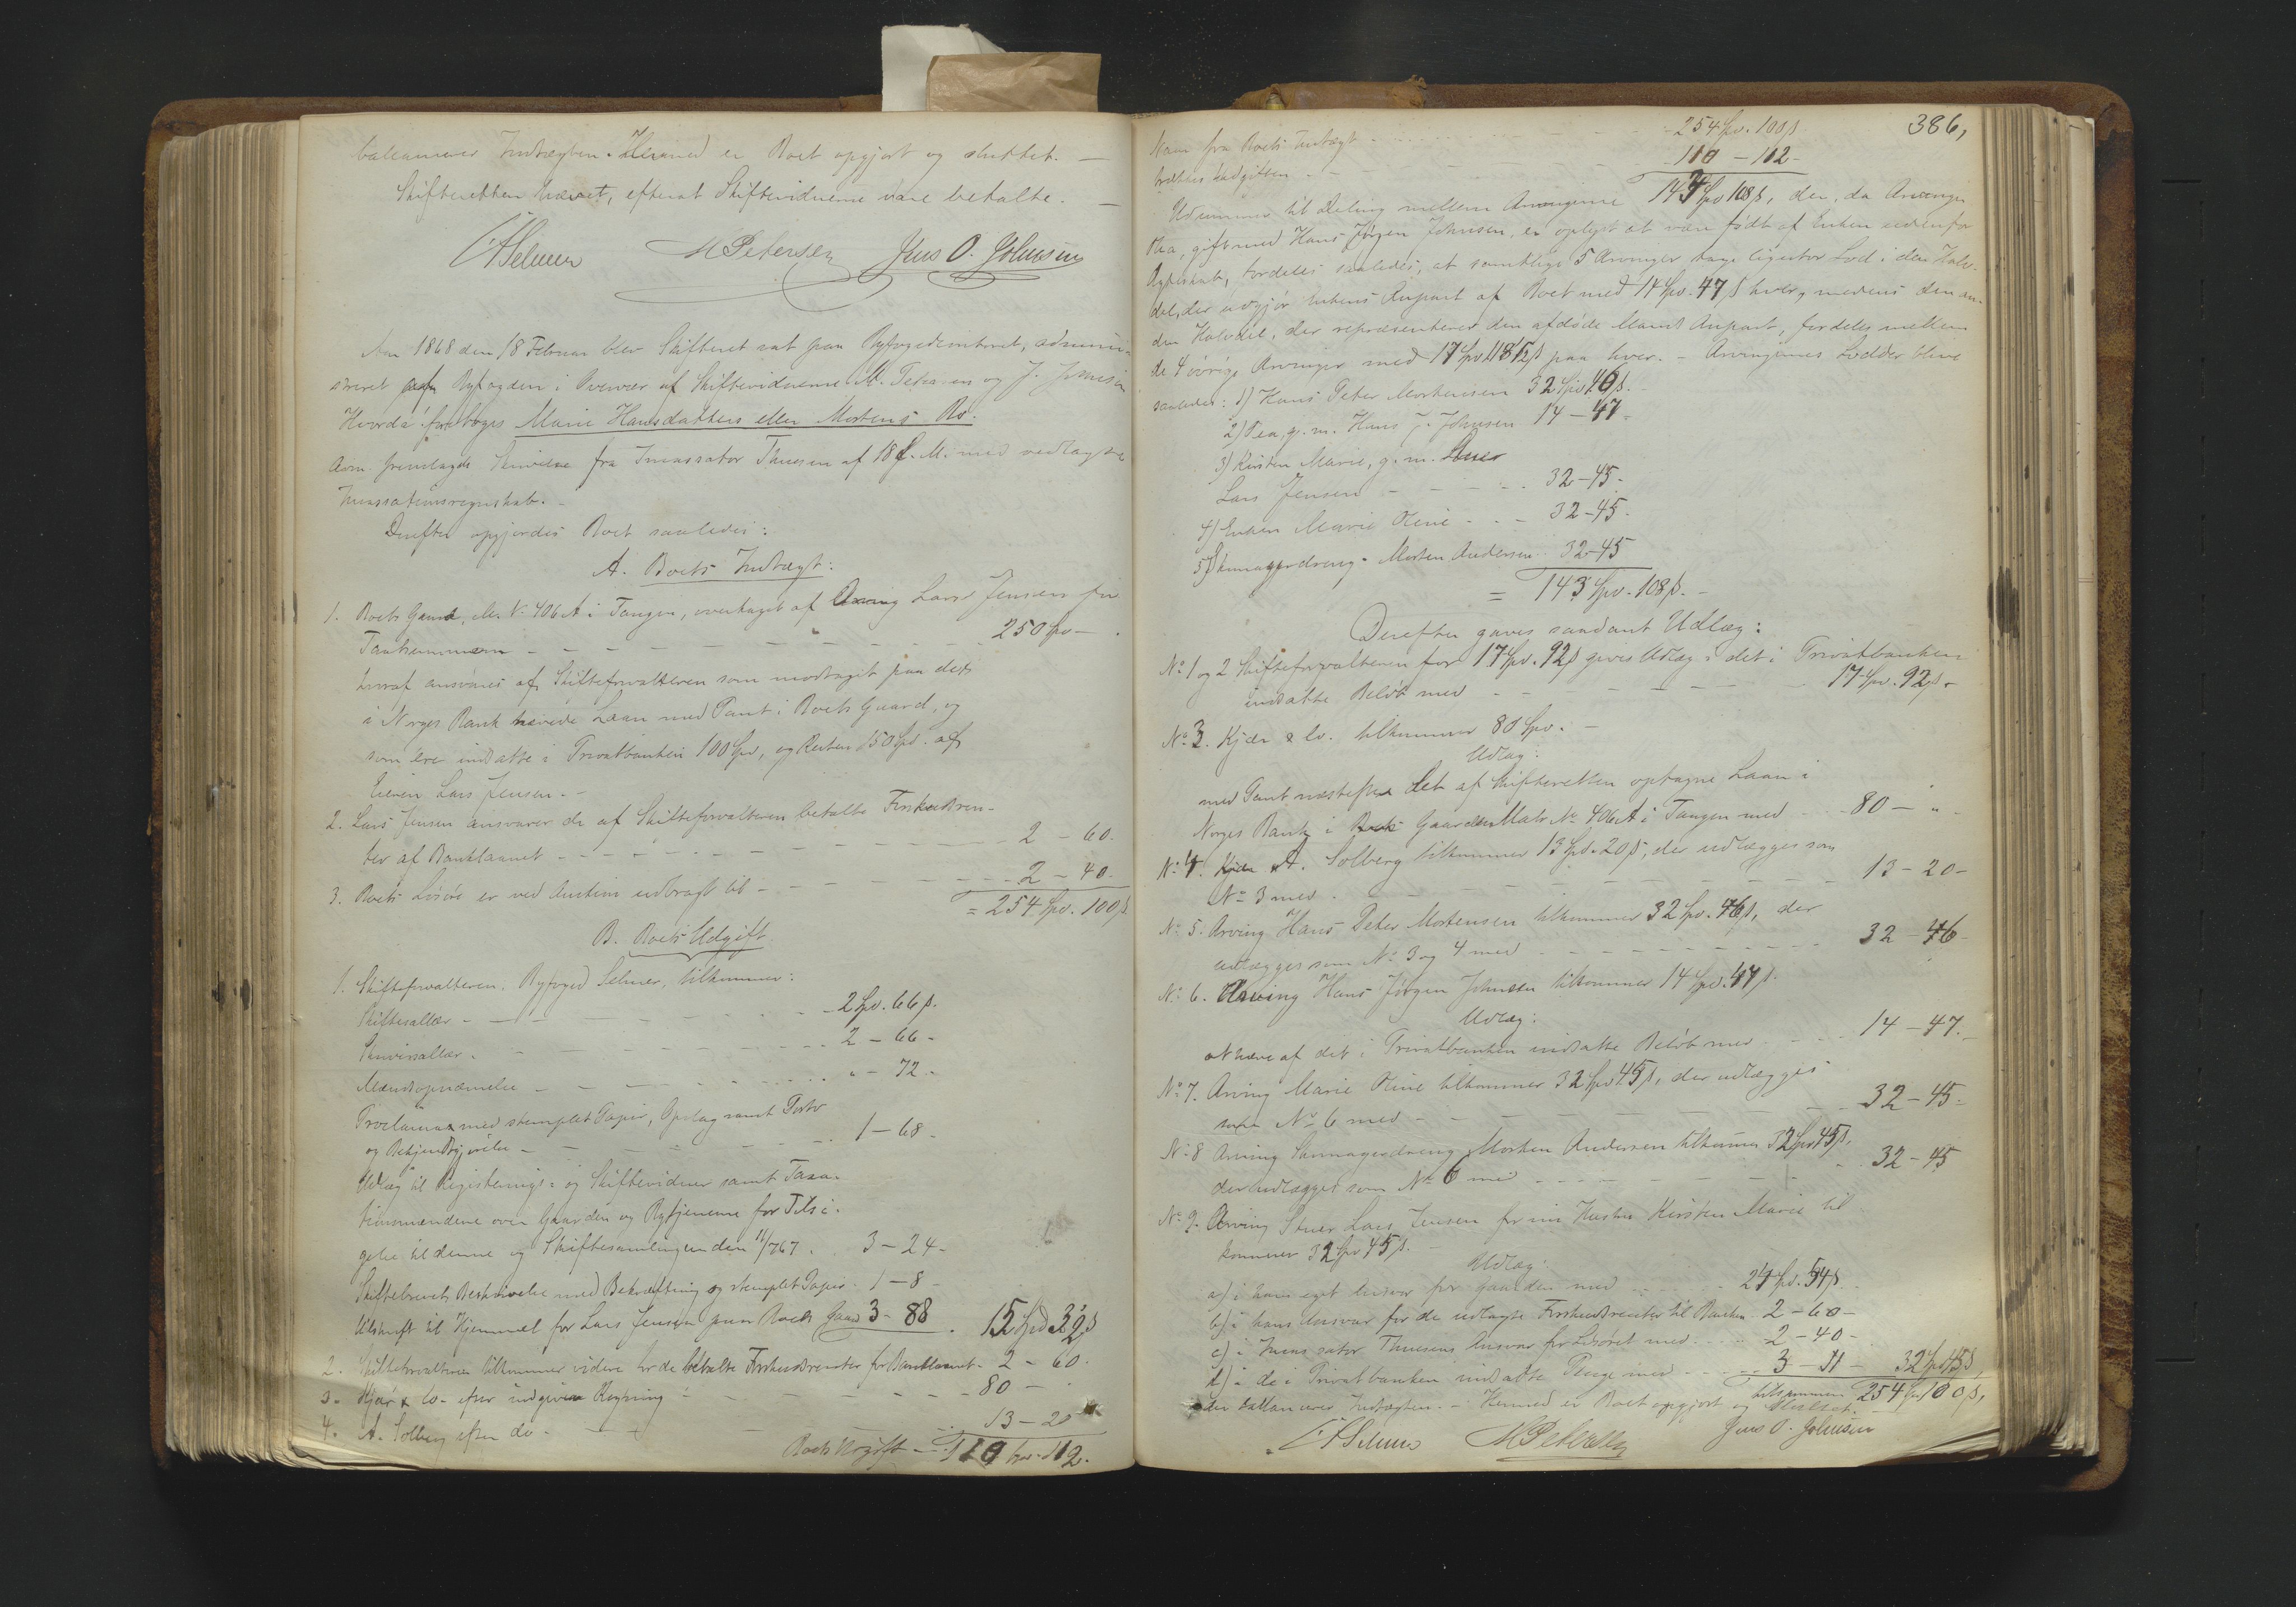 balancerer Indtægten. Hermed er Boet opgjort og sluttet. —
Skifteretten hævet, efterat Skiftevidnerne vare betalte. —
CASelmer MPetersen Jens O. Johnsen
Aar 1868 den 18 Februar blev Skifteret sat paa Byfogedcontoret, admini-
streret af Byfogden i Overvær af Skiftevidnerne M. Petersen og J. Johnsen
Hvorda foretoges Marie Hansdatters eller Mortens Bo.
Adm. fremlagde Skrivelse fra Incassator Thuesen af 18 f. M. med vedlagte
Incassationsregnskab. -
Derefter opgjordes Boet saaledes:
A. Boets Indtægt:
1. Boets Gaard, Mr. No 406 A i Tangen, overtaget af Arving Lars Jensen for
Taxtsummen - - - 250 Spd -
hvoraf ansvares af Skifteforvalteren som modtaget paa det
i Norges Bank hævede Laan med Pant i Boets Gaard, og
som ere indsatte i Privatbanken 100 Spd, og Resten 150 Spd. af
Eieren Lars Jensen. -
2. Lars Jensen ansvarer de af Skifteforvalteren betalte Forskudsren-
ter af Banklaanet - - - 2 - 60.
3. Boets Løsøre er ved Auction udbragt til - - - 2 - 40.
= 254 Spd. 100 ß
B. Boets Udgift.
1. Skifteforvalteren, Byfoged Selmer, tilkommer:
Skiftesallær - - - 2 Spd. 66 ß.
Skriversallær - - - 2 - 66 -
Mændsopnævnelse - - - " - 72 -
Proclama med stemplet Papir, Opslag samt Porto
og Bekjendtgjørelse - - - 1 - 68 -
Udlæg til Registerings- og Skiftevidner samt Taxa-
tionsmændene over Gaarden og Bytjenerne for Tilsi-
gelse til denne og Skiftesamlingen den 11/7 67. 3 - 24 -
Skiftebrevets Beskrivelse med Bekræftning og stemplet Papir. 1 - 8 -
Udskrift til Hjemmel for Lars Jensen paa Boets Gaard 3 - 88 . 15 Spd 32 ß
2. Skifteforvalteren tilkommer videre for de betalte Forskudsrenter for Banklaanet - 2 - 60.
3. Kjær & Co. efter indgiven Regning - - - 80 -
4. A. Solberg efter do - - - 13 - 20
Boets Udgift - - 110 Spd. 112.
386,
Naar fra Boets Indtægt - - - 254 Spd. 100 ß.
trækkes Udgiften - - - 110 - 112 -
Udkommer til Deling mellem Arvingerne 143 Spd 108 ß, der, da Arvinge
Thea, gift med Hans Jørgen Johnsen, er oplyst at være født af Enken udenfor
Ægteskab, fordeles saaledes, at samtlige 5 Arvinger tage ligestor Lod i den Halv-
del, der udgjør Enkens Anpart af Boet med 14 Spd. 47 ß hver, medens den an-
den Halvdel, der repræsenterer den afdøde Mands Anpart, fordeles mellem
de 4 øvrige Arvinger med 17 Spd 118 1/2 ß paa hver. - Arvingernes Lodder blive
saaledes: 1) Hans Peter Mortensen 32 Spd 46 ß.
2) Tea, g. m. Hans J. Johnsen 14 - 47 -
3) Kirsten Marie, g. m.
Lars Jensen - - - 32 - 45 -
4) Enken Marie Oline - - - 32 - 45 -
5) Skomagerdreng Morten Andersen 32 - 45
= 143 Spd. 108 ß. -
Derefter gaves saadant Udlæg:
No 1 og 2 Skifteforvalteren for 17 Spd. 92 ß gives Udlæg i det i Privatbanken
indsatte Beløb med - - - 17 Spd. 92 ß.
No 3. Kjær & Co. tilkommer 80 Spd. -
Udlæg:
med Pant næstefter det af Skifteretten optagne Laan i
Norges Bank i Gaarden Matr. No 406 A i Tangen med - - 80 - "
No 4. A. Solberg tilkommer 13 Spd. 20 ß, der udlægges som
No 3 med - - - 13 - 20 -
No 5. Arving Hans Peter Mortensen tilkommer 32 Spd. 46 ß, der
udlægges som No 3 og 4 med - - - 32 - 46 -
No 6. Arving Hans Jørgen Johnsen tilkommer 14 Spd. 47 ß.
Udlæg:
at hæve af det i Privatbanken indsatte Beløb med - - - 14 - 47. -
No 7. Arving Marie Oline tilkommer 32 Spd 45 ß, der udlægges
som No 6 med - - - 32 - 45 -
No 8 Arving Skomagerdreng Morten Andersen tilkommer 32 Spd 45 ß,
der udlægges som No 6 med - - - 32 - 45
No 9. Arving Lars Jensen for sin Hustru Kirsten Marie til-
kommer 32 Spd 45 ß. -
Udlæg:
a) i hans eget Ansvar for Gaarden med - - - 24 Spd. 54 ß.
b) i hans Ansvar for de udlagte Forskudsrenter til Banken 2 - 60 -
c) i Incassator Thuesens Ansvar for Løsøret med - - 2 - 40 -
d) i de i Privatbanken indsatte Penge med - - - 3 - 11 - 32 Spd 45 ß,
tilsammen 254 Spd 100 ß,
der ballancerer Indtægten. - Hermed er Boet opgjort og sluttet.
CASelmer MPetersen Jens O. Johnsen